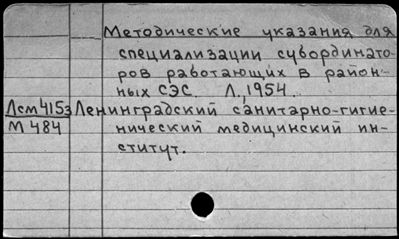 Методические указания для
специализации субординато-
ров работающих в район-
ных СЭС. Л., 1954.
Лсм4153 Ленинградский санитарно-гигие-
М484 нический медицинский ин-
ститут.